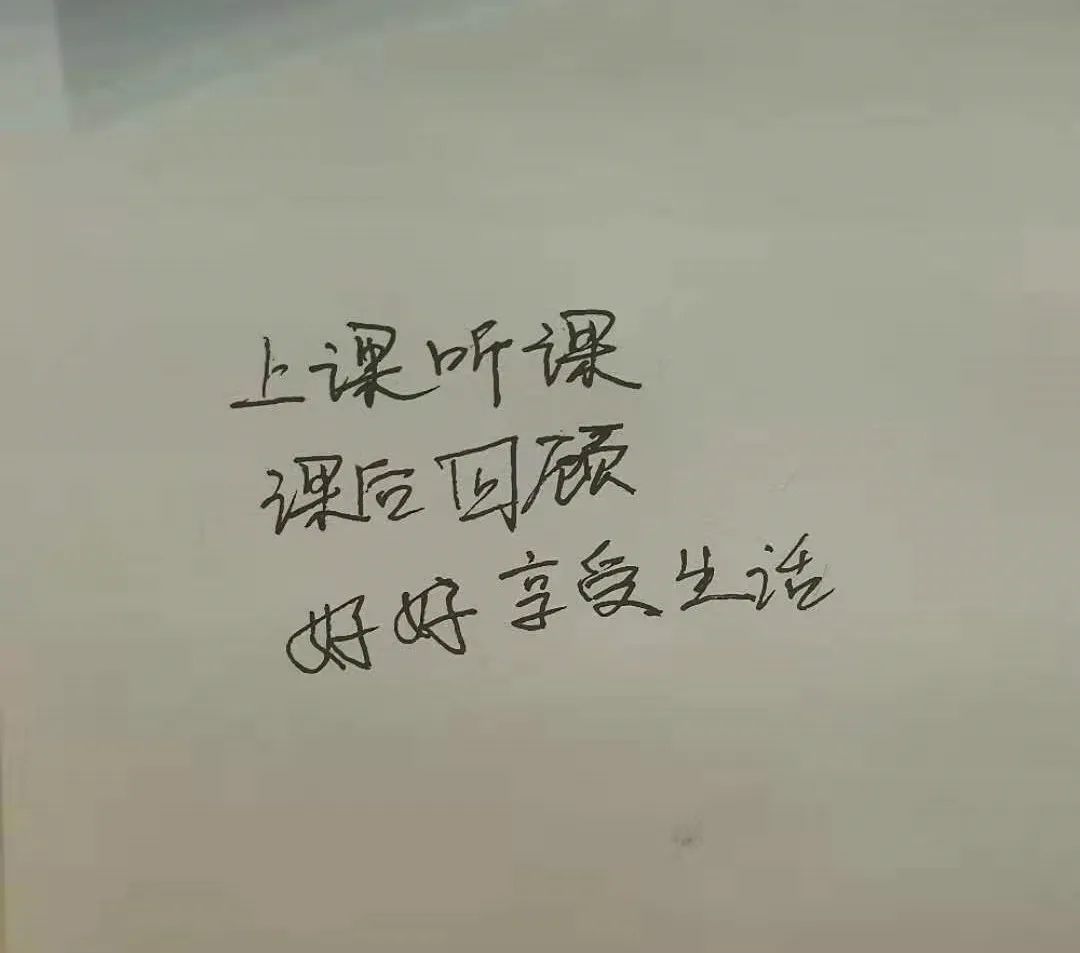 上课听课
课后回顾
好好享受生活